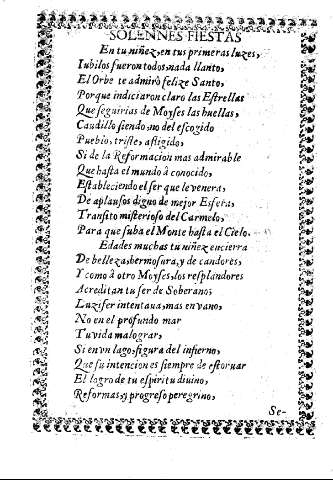 SOLENNES FIESTAS
En tu niñez, en tus primeras luzes,
Iubilos fueron todos, nada llanto,
El Orbe te admirò felize Santo,
Porque indiciaron claro las Estrellas
Que seguirias de Moyses las huellas,
Caudillo siendo, no del escogido
Pueblo, triste, afligido,
Si de la Reformacion mas admirable
Que hasta el mundo à conocido,
Estableciendo el ser que le venera,
De aplausos digno de mejor Esfera,
Transito misterioso del Carmelo,
Para que suba el Monte hasta el Cielo.
Edades muchas tu niñez encierra
De belleza, hermosura, y de candores,
Y como à otro Moyses, los resplandores
Acreditan tu ser de Soberano;
Luzifer intentaua, mas en vano,
No en el profundo mar
Tu vida malograr,
Si en vn lago, figura del infierno,
Que su intencion es siempre de estoruar
El logro de tu espiritu diuino,
Reformas, y progreso peregrino,
Se-